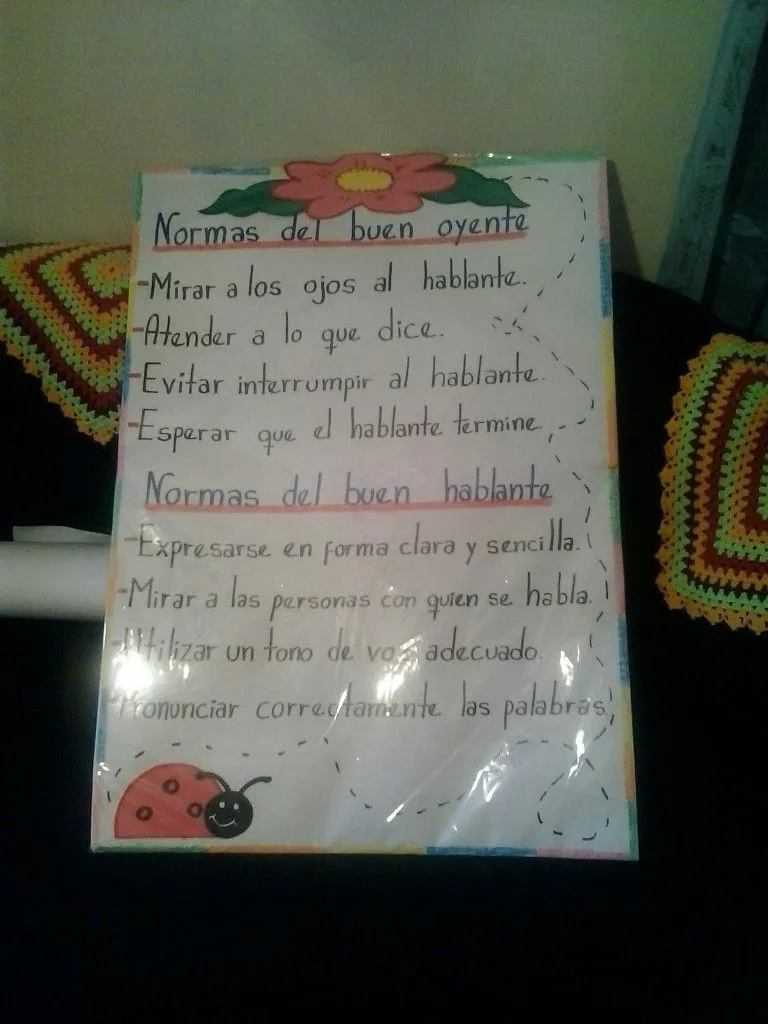 Normas del buen oyente
-Mirar a los ojos al hablante.
-Atender a lo que dice.
-Evitar interrumpir al hablante.
-Esperar que el hablante termine.
Normas del buen hablante
-Expresarse en forma clara y sencilla.
-Mirar a las personas con quien se habla.
-Utilizar un tono de vos adecuado.
-Pronunciar correctamente las palabras.